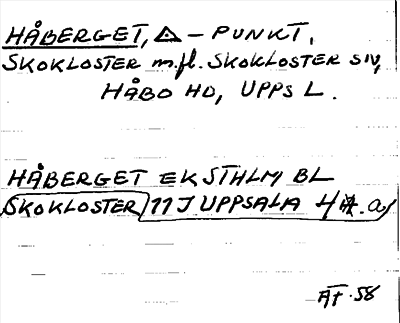 HÅBERGET, △ - PUNKT,
SKOKLOSTER m.fl. SKOKLOSTER SN,
HÅBO HD, UPPS L.
HÅBERGET EK STHLM BL
SKOKLOSTER 11 I UPPSALA 4 a
ÄT. 58